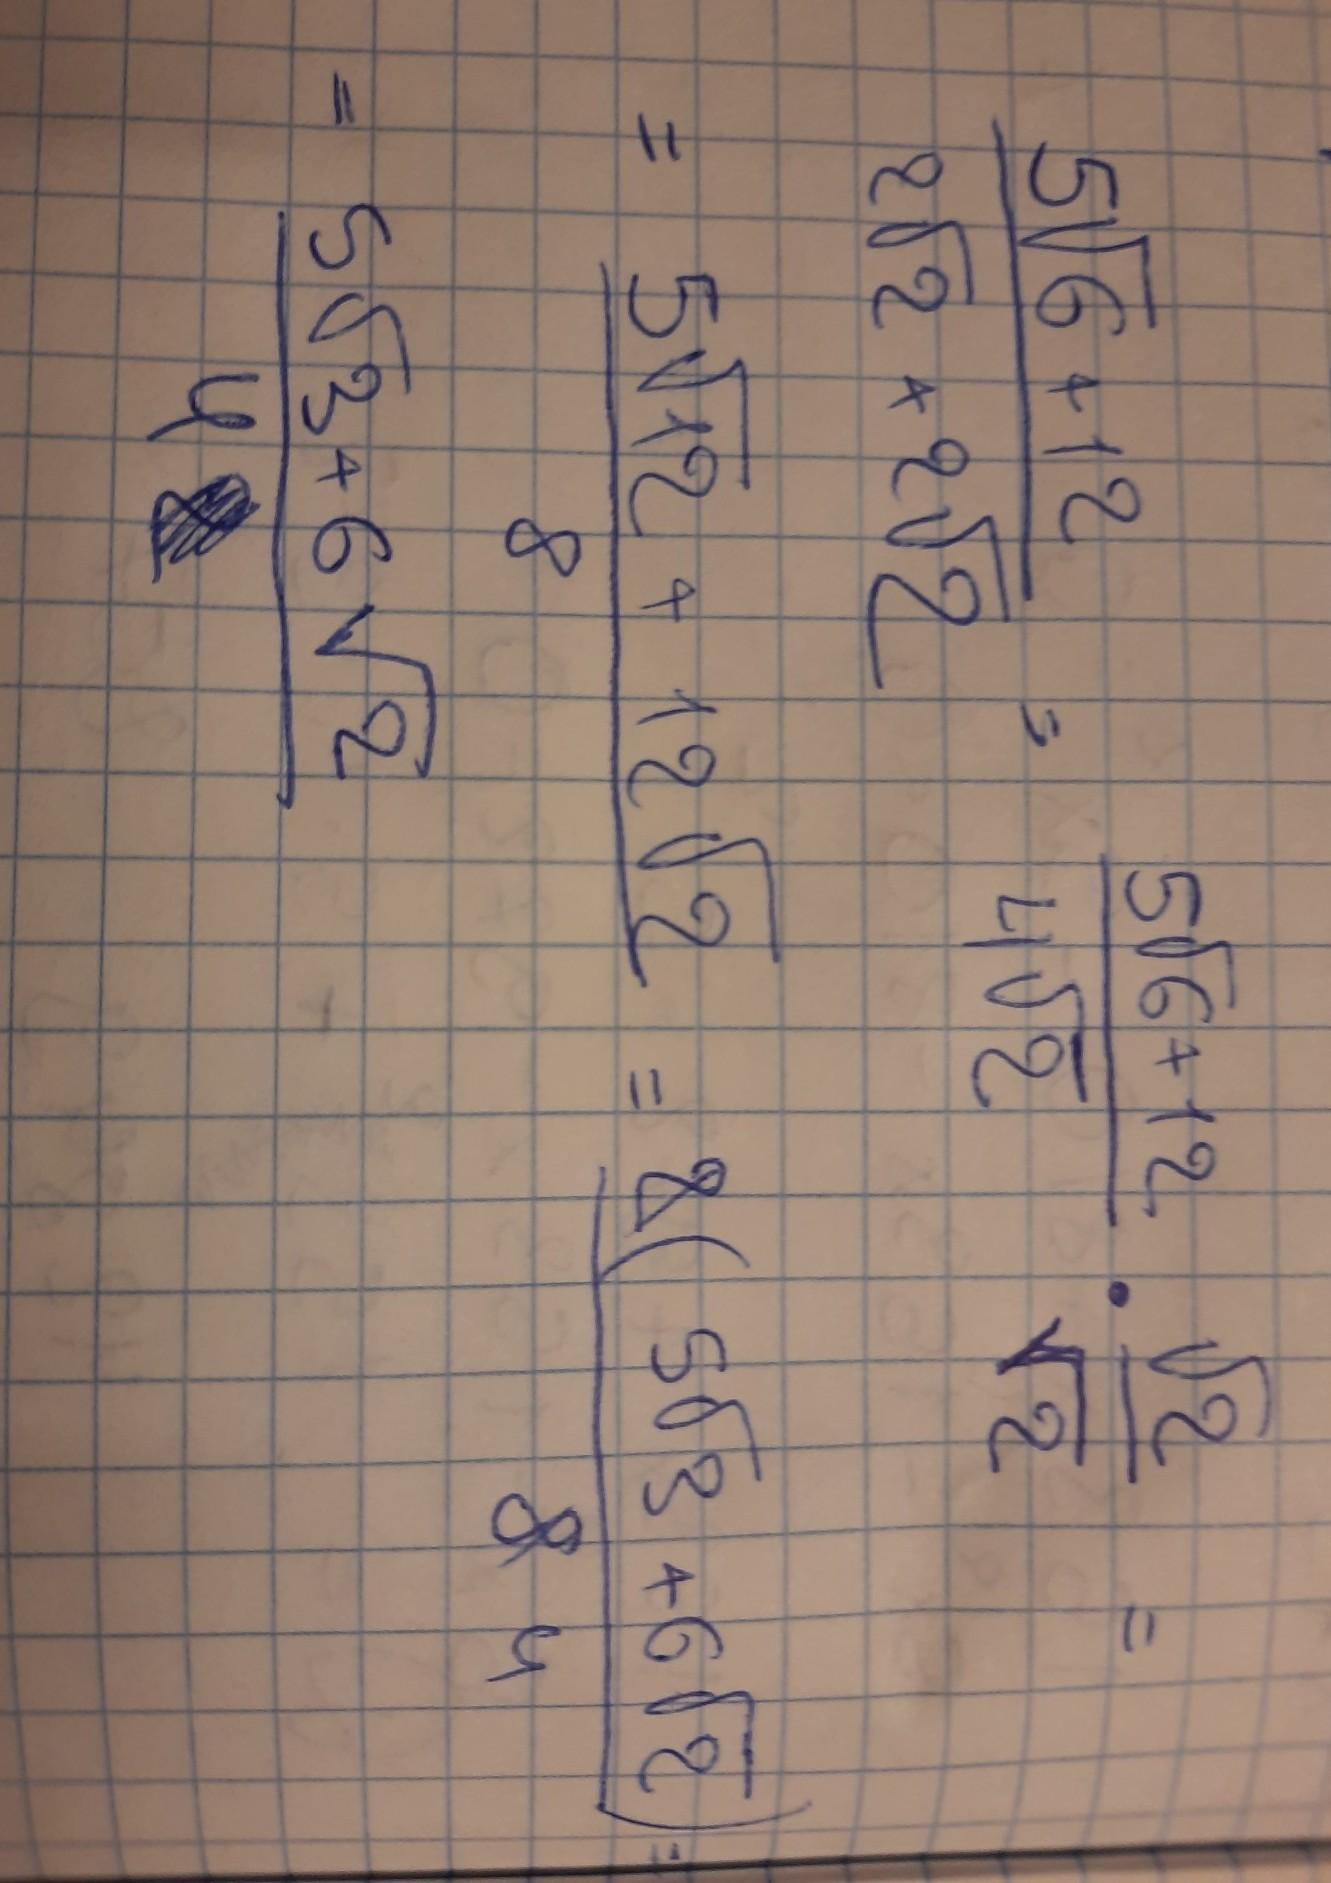 (5√6 + 12)/(2√2 + 2√2) = (5√6 + 12)/(4√2) · √2/√2 =
= (5√12 + 12√2)/8 = 2(5√3 + 6√2)/8 4 =
= (5√3 + 6√2)/4